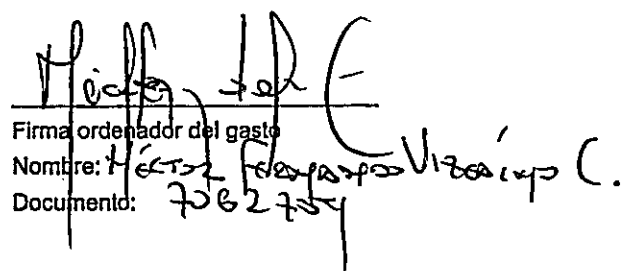 Firma ordenador del gasto
Nombre: Héctor Fernando Vizcaíno C.
Documento: